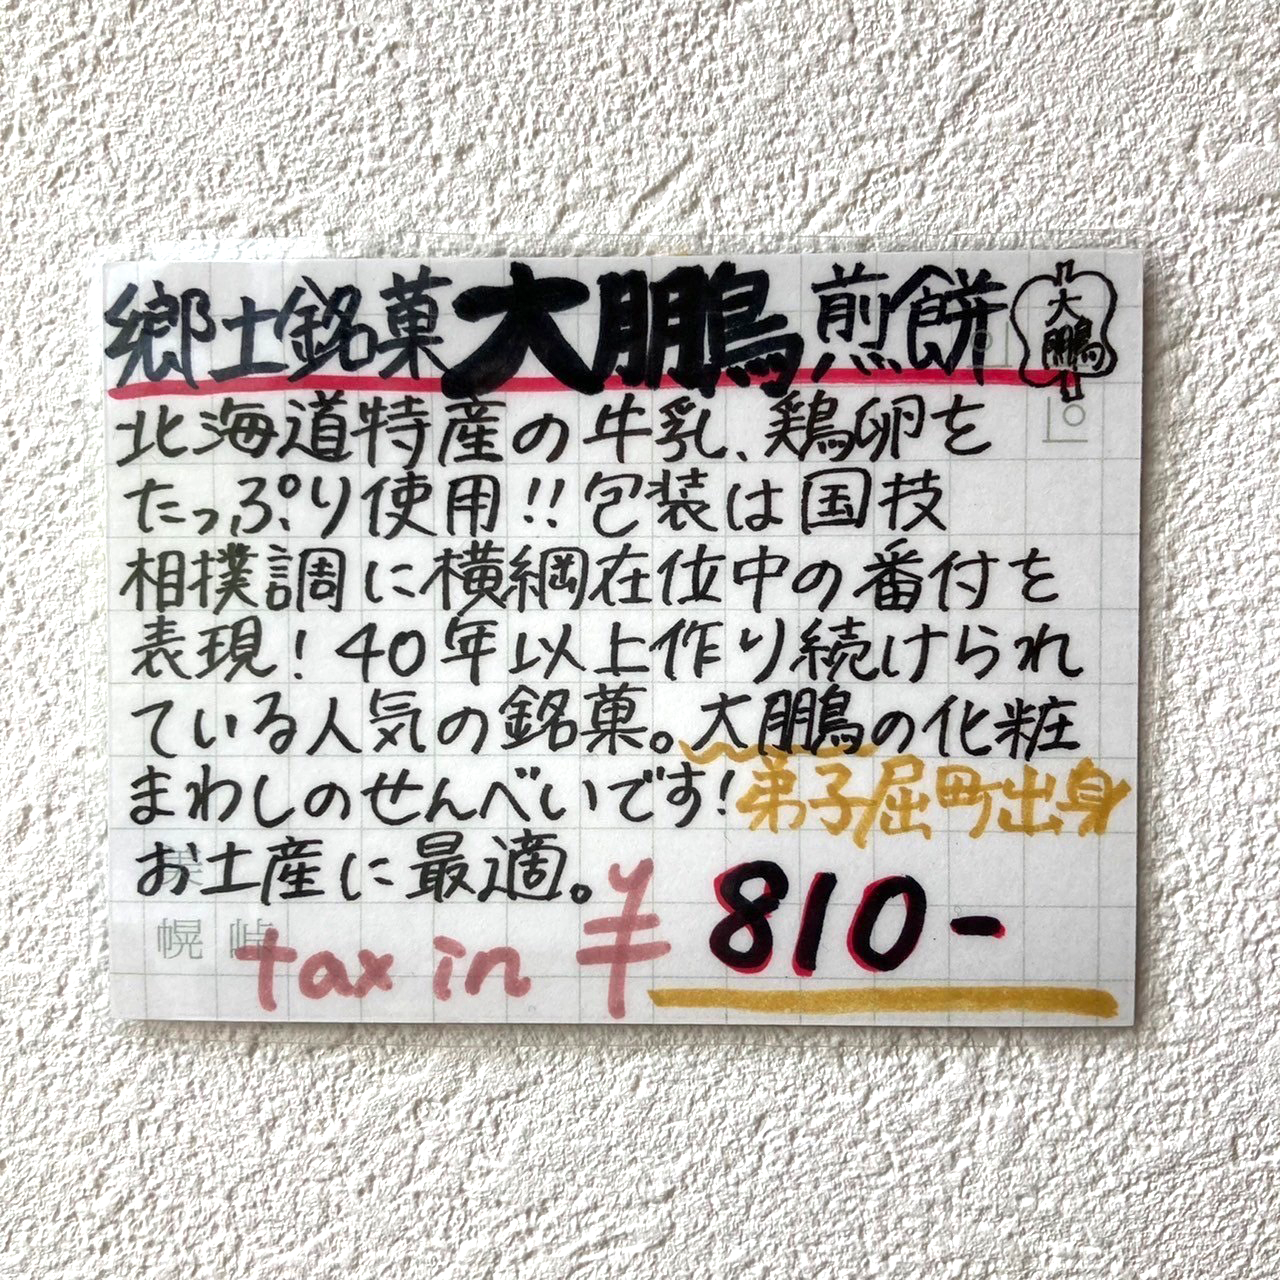 郷土銘菓大鵬煎餅
大
鵬
北海道特産の牛乳、鶏卵を
たっぷり使用!!包装は国技
相撲調に横綱在位中の番付を
表現!40年以上作り続けられ
ている人気の銘菓。大鵬の化粧
まわしのせんべいです!弟子屈町出身
お土産に最適。
tax in ¥810-
幌